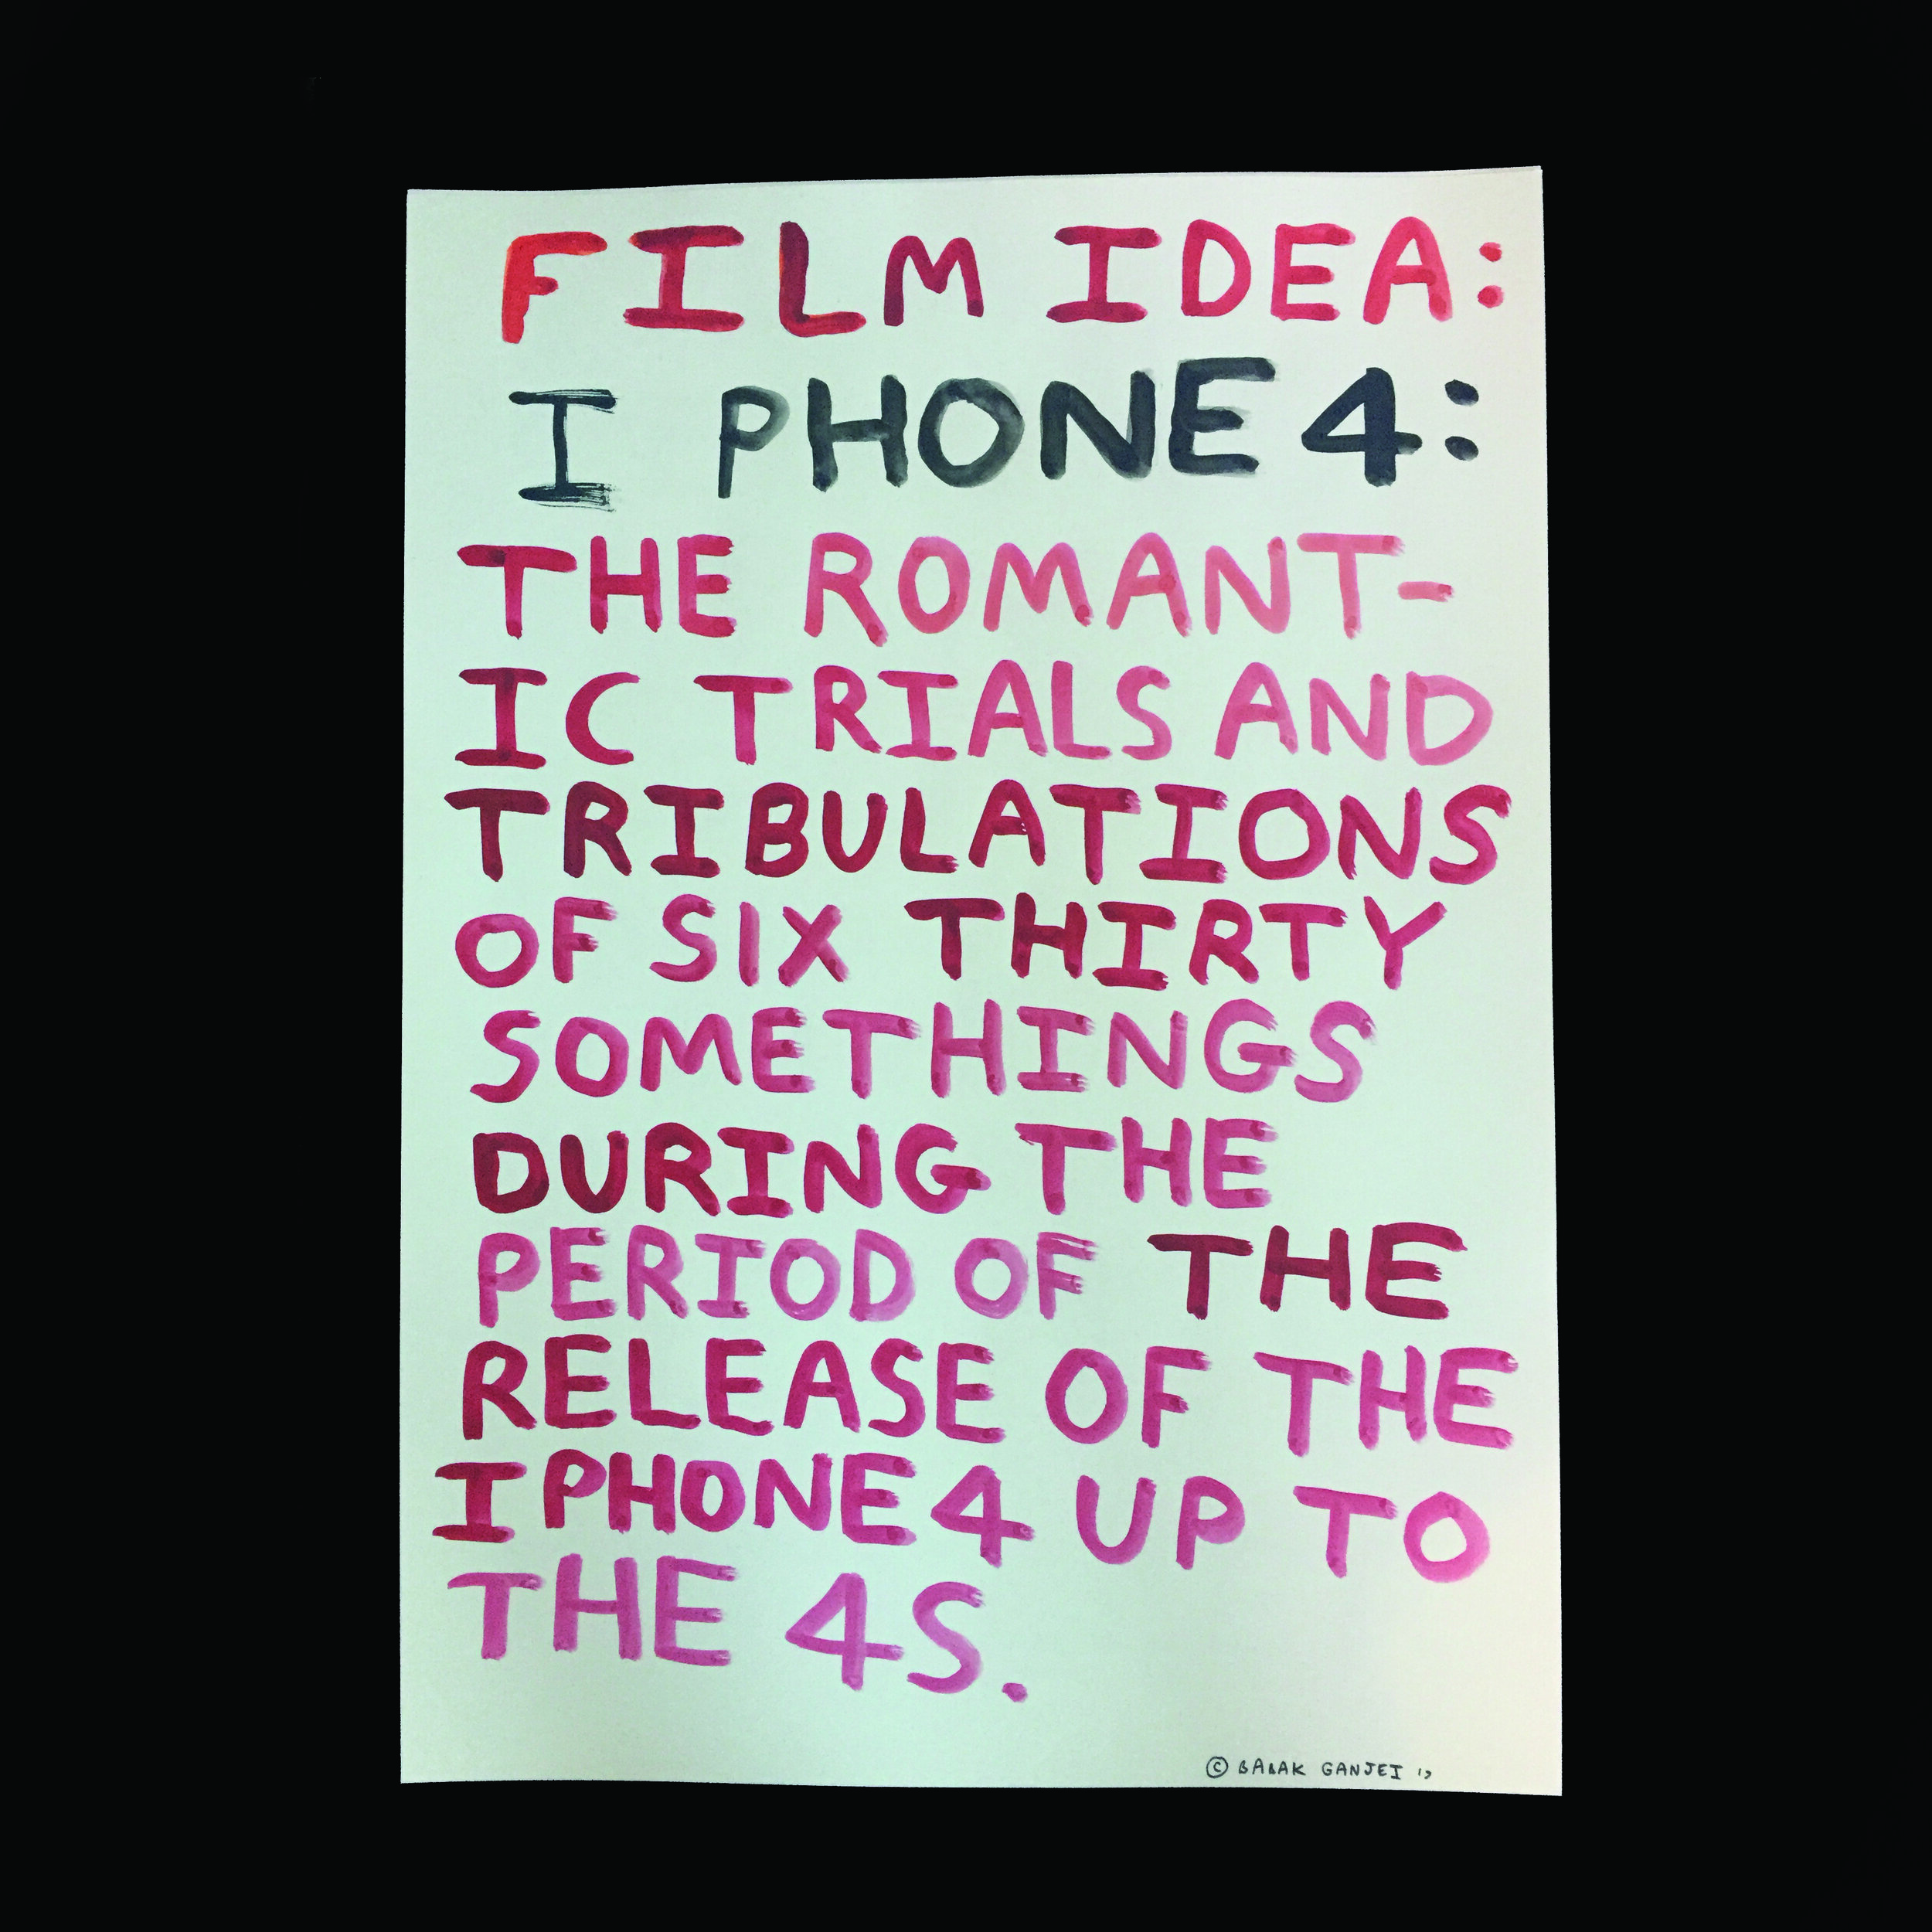 FILM IDEA:
I PHONE 4:
THE ROMANT-
IC TRIALS AND
TRIBULATIONS
OF SIX THIRTY
SOMETHINGS
DURING THE
PERIOD OF THE
RELEASE OF THE
I PHONE 4 UP TO
THE 4S.
© BABAK GANJEI